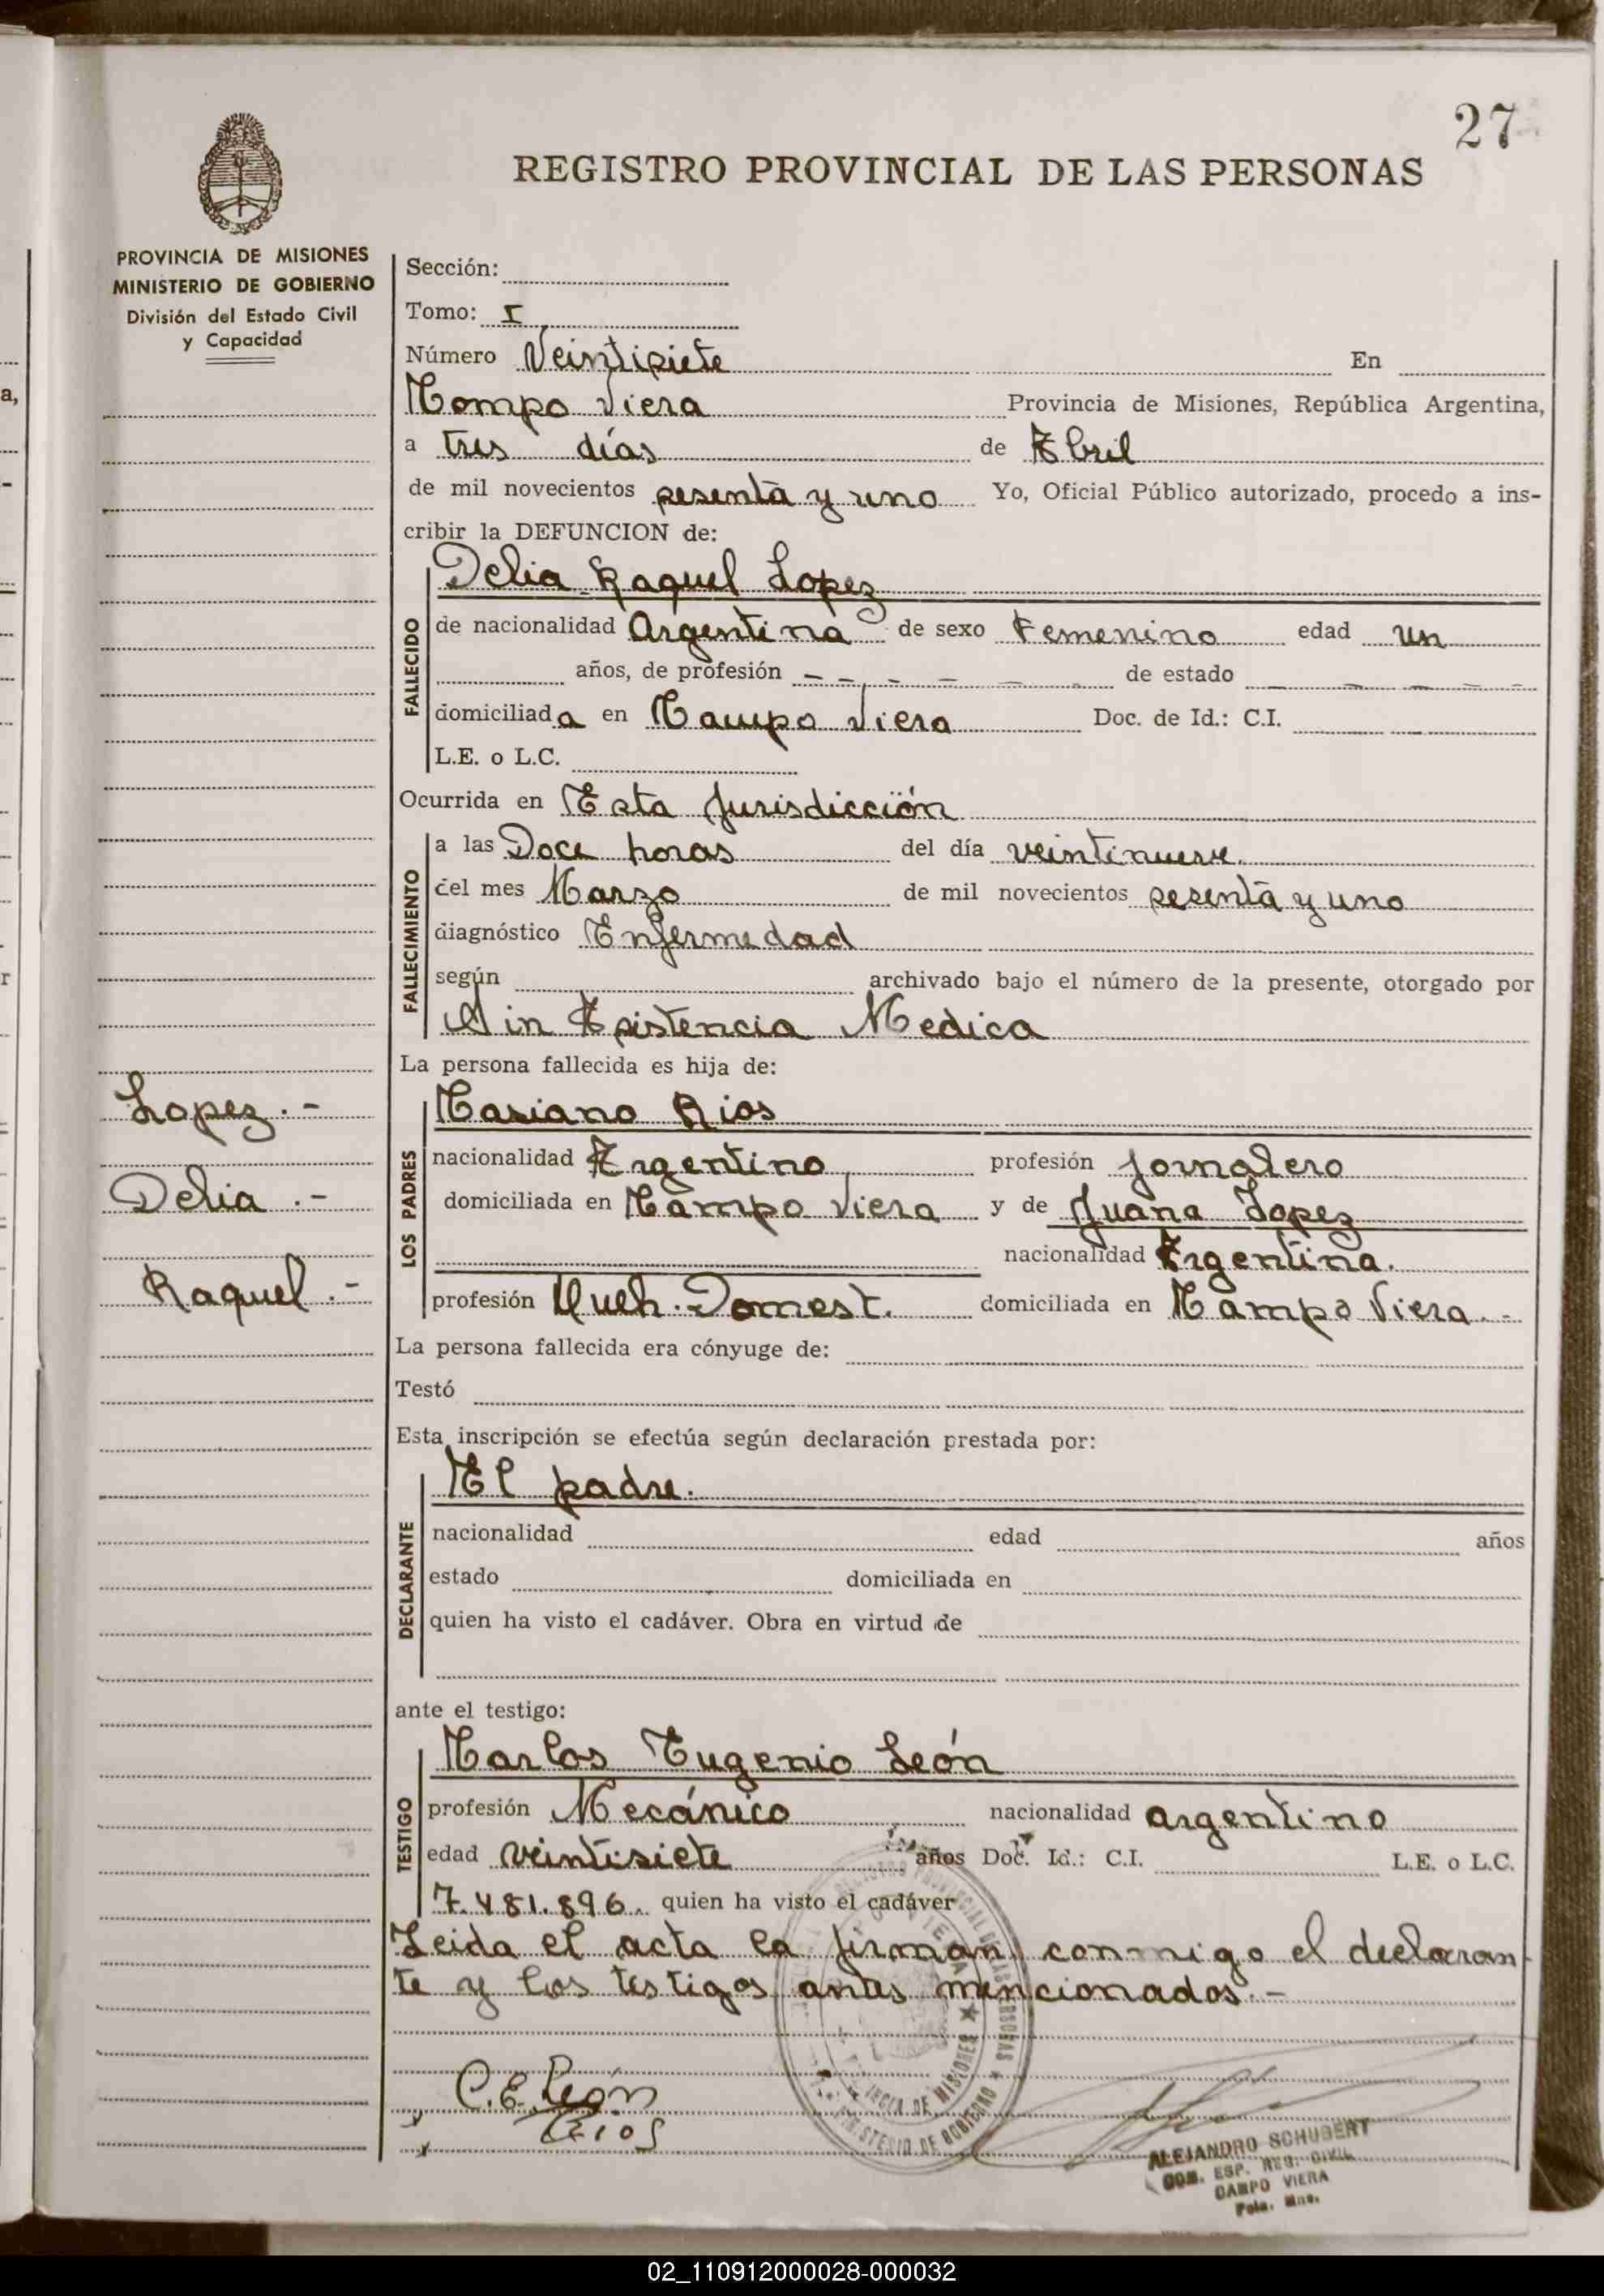 27
REGISTRO PROVINCIAL DE LAS PERSONAS
PROVINCIA DE MISIONES
MINISTERIO DE GOBIERNO
División del Estado Civil
y Capacidad
Sección:
Tomo: I
Número Veintisiete En
Campo Viera Provincia de Misiones, República Argentina,
a tres días de Abril
de mil novecientos sesenta y uno Yo, Oficial Público autorizado, procedo a ins-
cribir la DEFUNCION de:
Delia Raquel Lopez
FALLECIDO
de nacionalidad Argentina de sexo Femenino edad un
años, de profesión – – – – – – de estado – – – – –
domiciliada en Campo Viera Doc. de Id.: C.I.
L.E. o L.C.
Ocurrida en Esta Jurisdicción
FALLECIMIENTO
a las Doce horas del día veintinueve.
del mes Marzo de mil novecientos sesenta y uno
diagnóstico Enfermedad
según archivado bajo el número de la presente, otorgado por
Sin Asistencia Medica
La persona fallecida es hija de:
Lopez.-
Delia.-
Raquel.-
LOS PADRES
Mariano Rios
nacionalidad Argentino profesión Jornalero
domiciliada en Campo Viera y de Juana Lopez
nacionalidad Argentina.
profesión Queh. Domest. domiciliada en Campo Viera.-
La persona fallecida era cónyuge de:
Testó
Esta inscripción se efectúa según declaración prestada por:
DECLARANTE
El padre.
nacionalidad edad años
estado domiciliada en
quien ha visto el cadáver. Obra en virtud de
ante el testigo:
TESTIGO
Carlos Eugenio León
profesión Mecánico nacionalidad argentino
edad veintisiete años Doc. Id.: C.I. L.E. o L.C.
7.481.896. quien ha visto el cadáver
Leida el acta la firman conmigo el declaran-
te y los testigos antes mencionados.-
C.E. León
Rios
ALEJANDRO SCHUBERT
ESP. REG. CIVIL
CAMPO VIERA
Pcia. Mns.
02_110912000028-000032